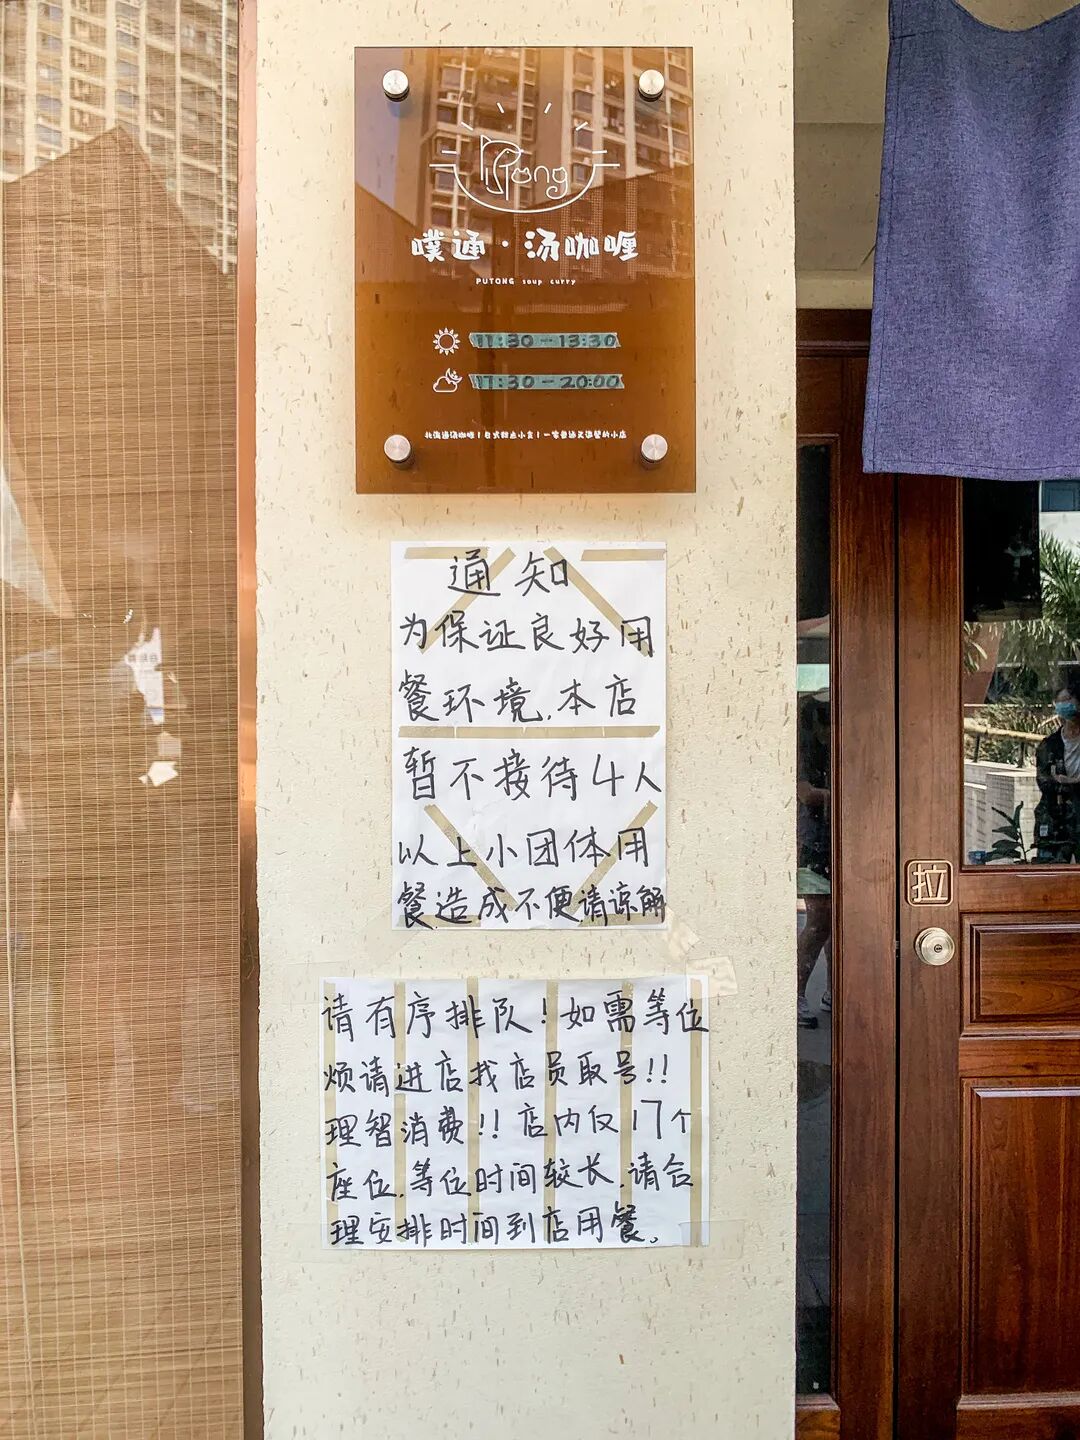 PuTong
噗通·汤咖喱
PUTONG soup curry
11:30-13:30
17:30-20:00
通知
为保证良好用
餐环境.本店
暂不接待4人
以上小团体用
餐造成不便请谅解
请有序排队!如需等位
烦请进店找店员取号!!
理智消费!!店内仅17个
座位.等位时间较长.请合
理安排时间到店用餐。
拉